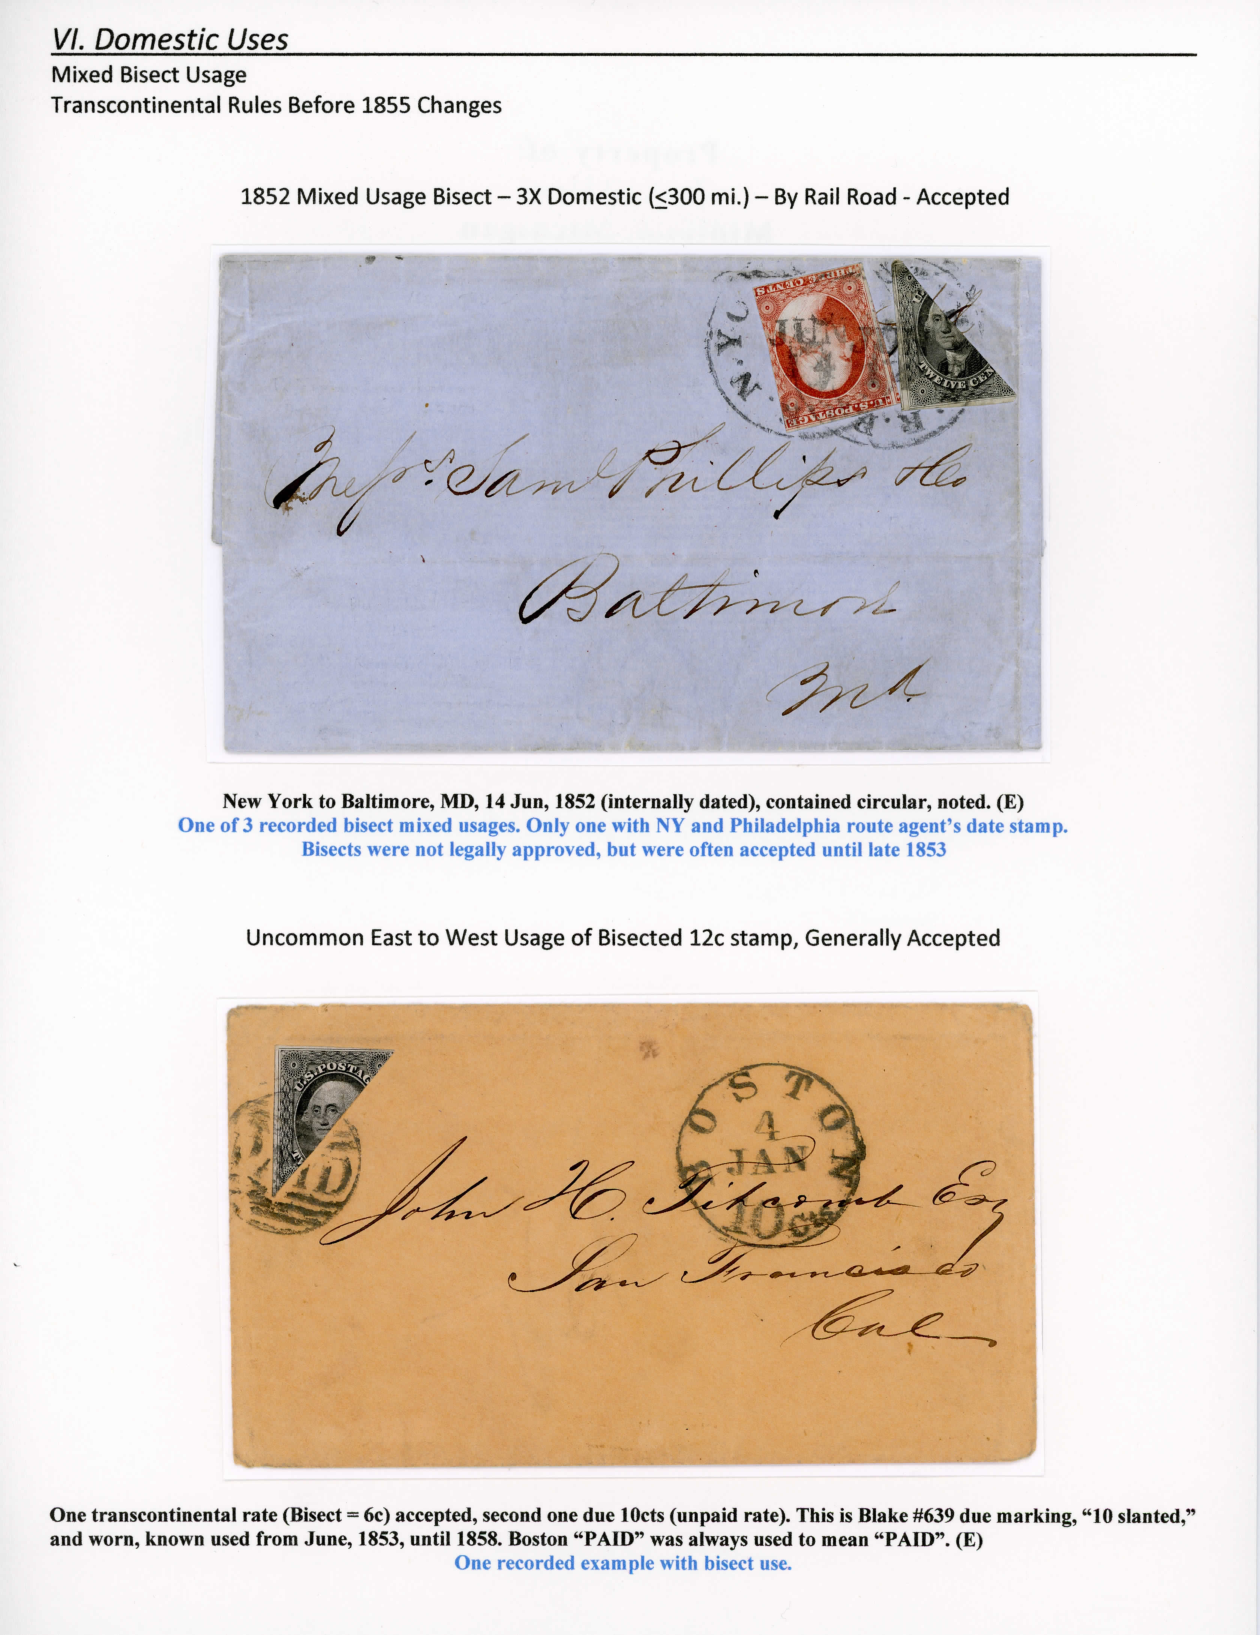 VI. Domestic Uses
Mixed Bisect Usage
Transcontinental Rules Before 1855 Changes
1852 Mixed Usage Bisect – 3X Domestic (≤300 mi.) – By Rail Road - Accepted
N.Y.
THREE CENTS
JUN
14
U.S. POSTAGE
TWELVE CEN
R.R.
Messrs. Saml Phillips & Co
Baltimore
Md.
New York to Baltimore, MD, 14 Jun, 1852 (internally dated), contained circular, noted. (E)
One of 3 recorded bisect mixed usages. Only one with NY and Philadelphia route agent's date stamp.
Bisects were not legally approved, but were often accepted until late 1853
Uncommon East to West Usage of Bisected 12c stamp, Generally Accepted
U.S. POSTAG
PAID
BOSTON
4
JAN
10cts
John H. Titcomb Esq
San Francisco
Cal
One transcontinental rate (Bisect = 6c) accepted, second one due 10cts (unpaid rate). This is Blake #639 due marking, “10 slanted,”
and worn, known used from June, 1853, until 1858. Boston “PAID” was always used to mean “PAID”. (E)
One recorded example with bisect use.